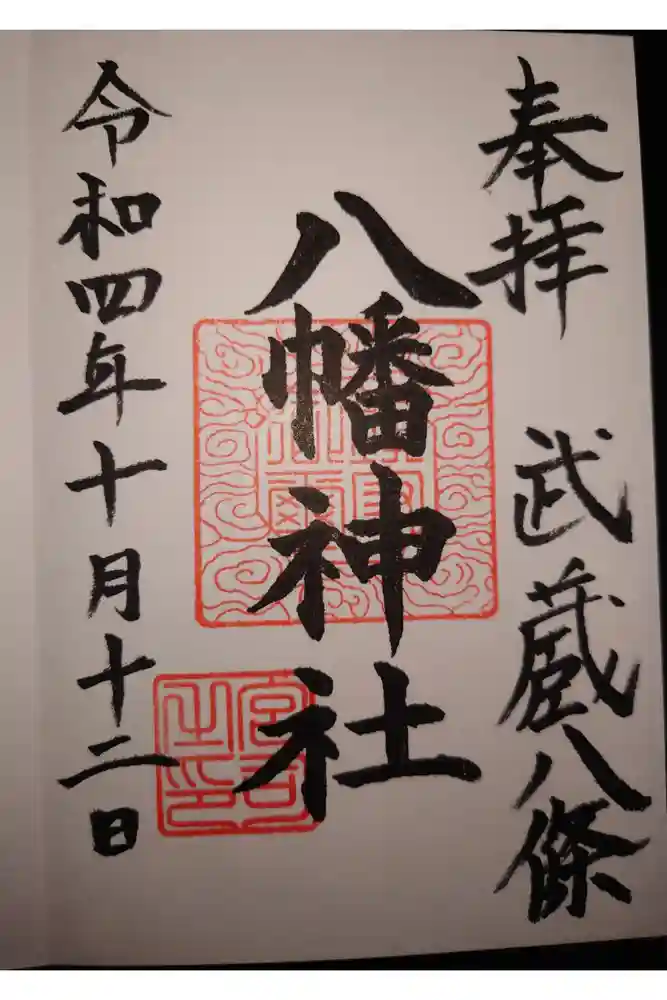 奉拝 武蔵八條
八幡神社
宮司之印
令和四年十月十二日